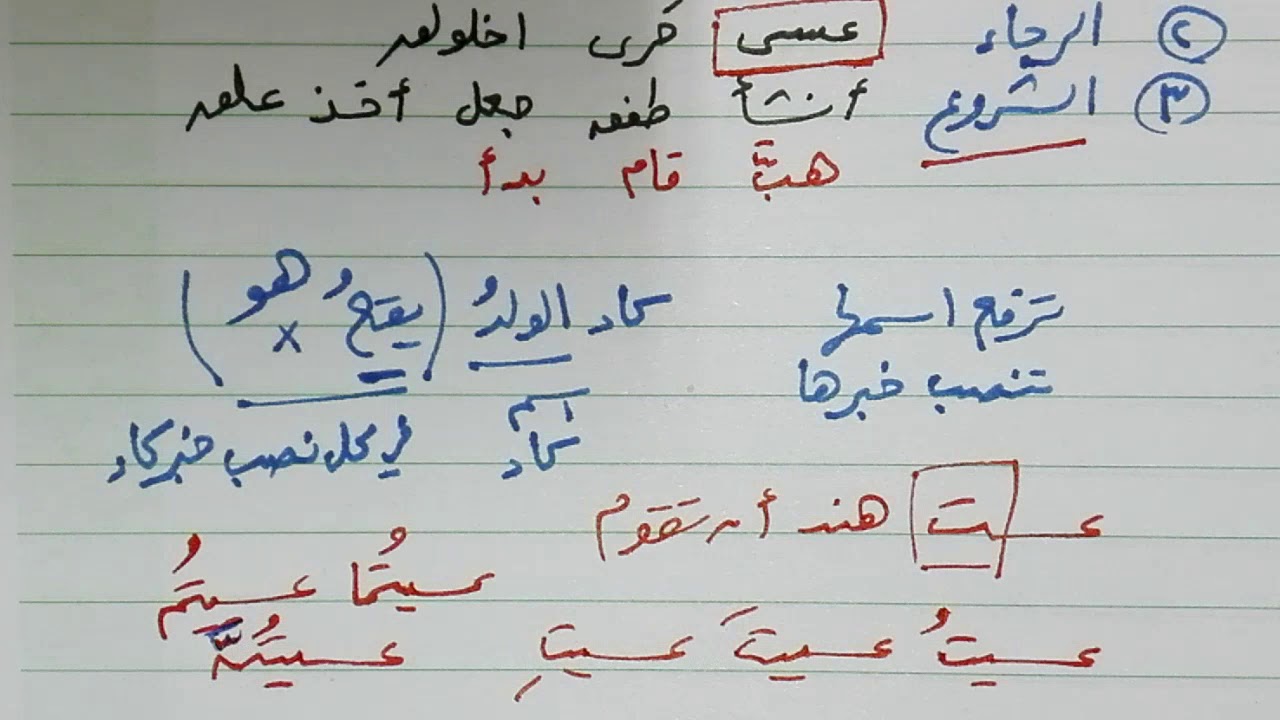 ٢ الرجاء عسى حرى اخلولق
٣ الشروع أنشأ طفق جعل أخذ علق
هبَّ قام بدأ
ترفع اسمها كاد الولدُ (يقعُ هو)
x
تنصب خبرها اسم كاد في محل نصب خبر كاد
عست هند أن تقوم
عسيتُما عسيتُم
عسيتُ عسيتَ عسيتِ عسيتُنَّ